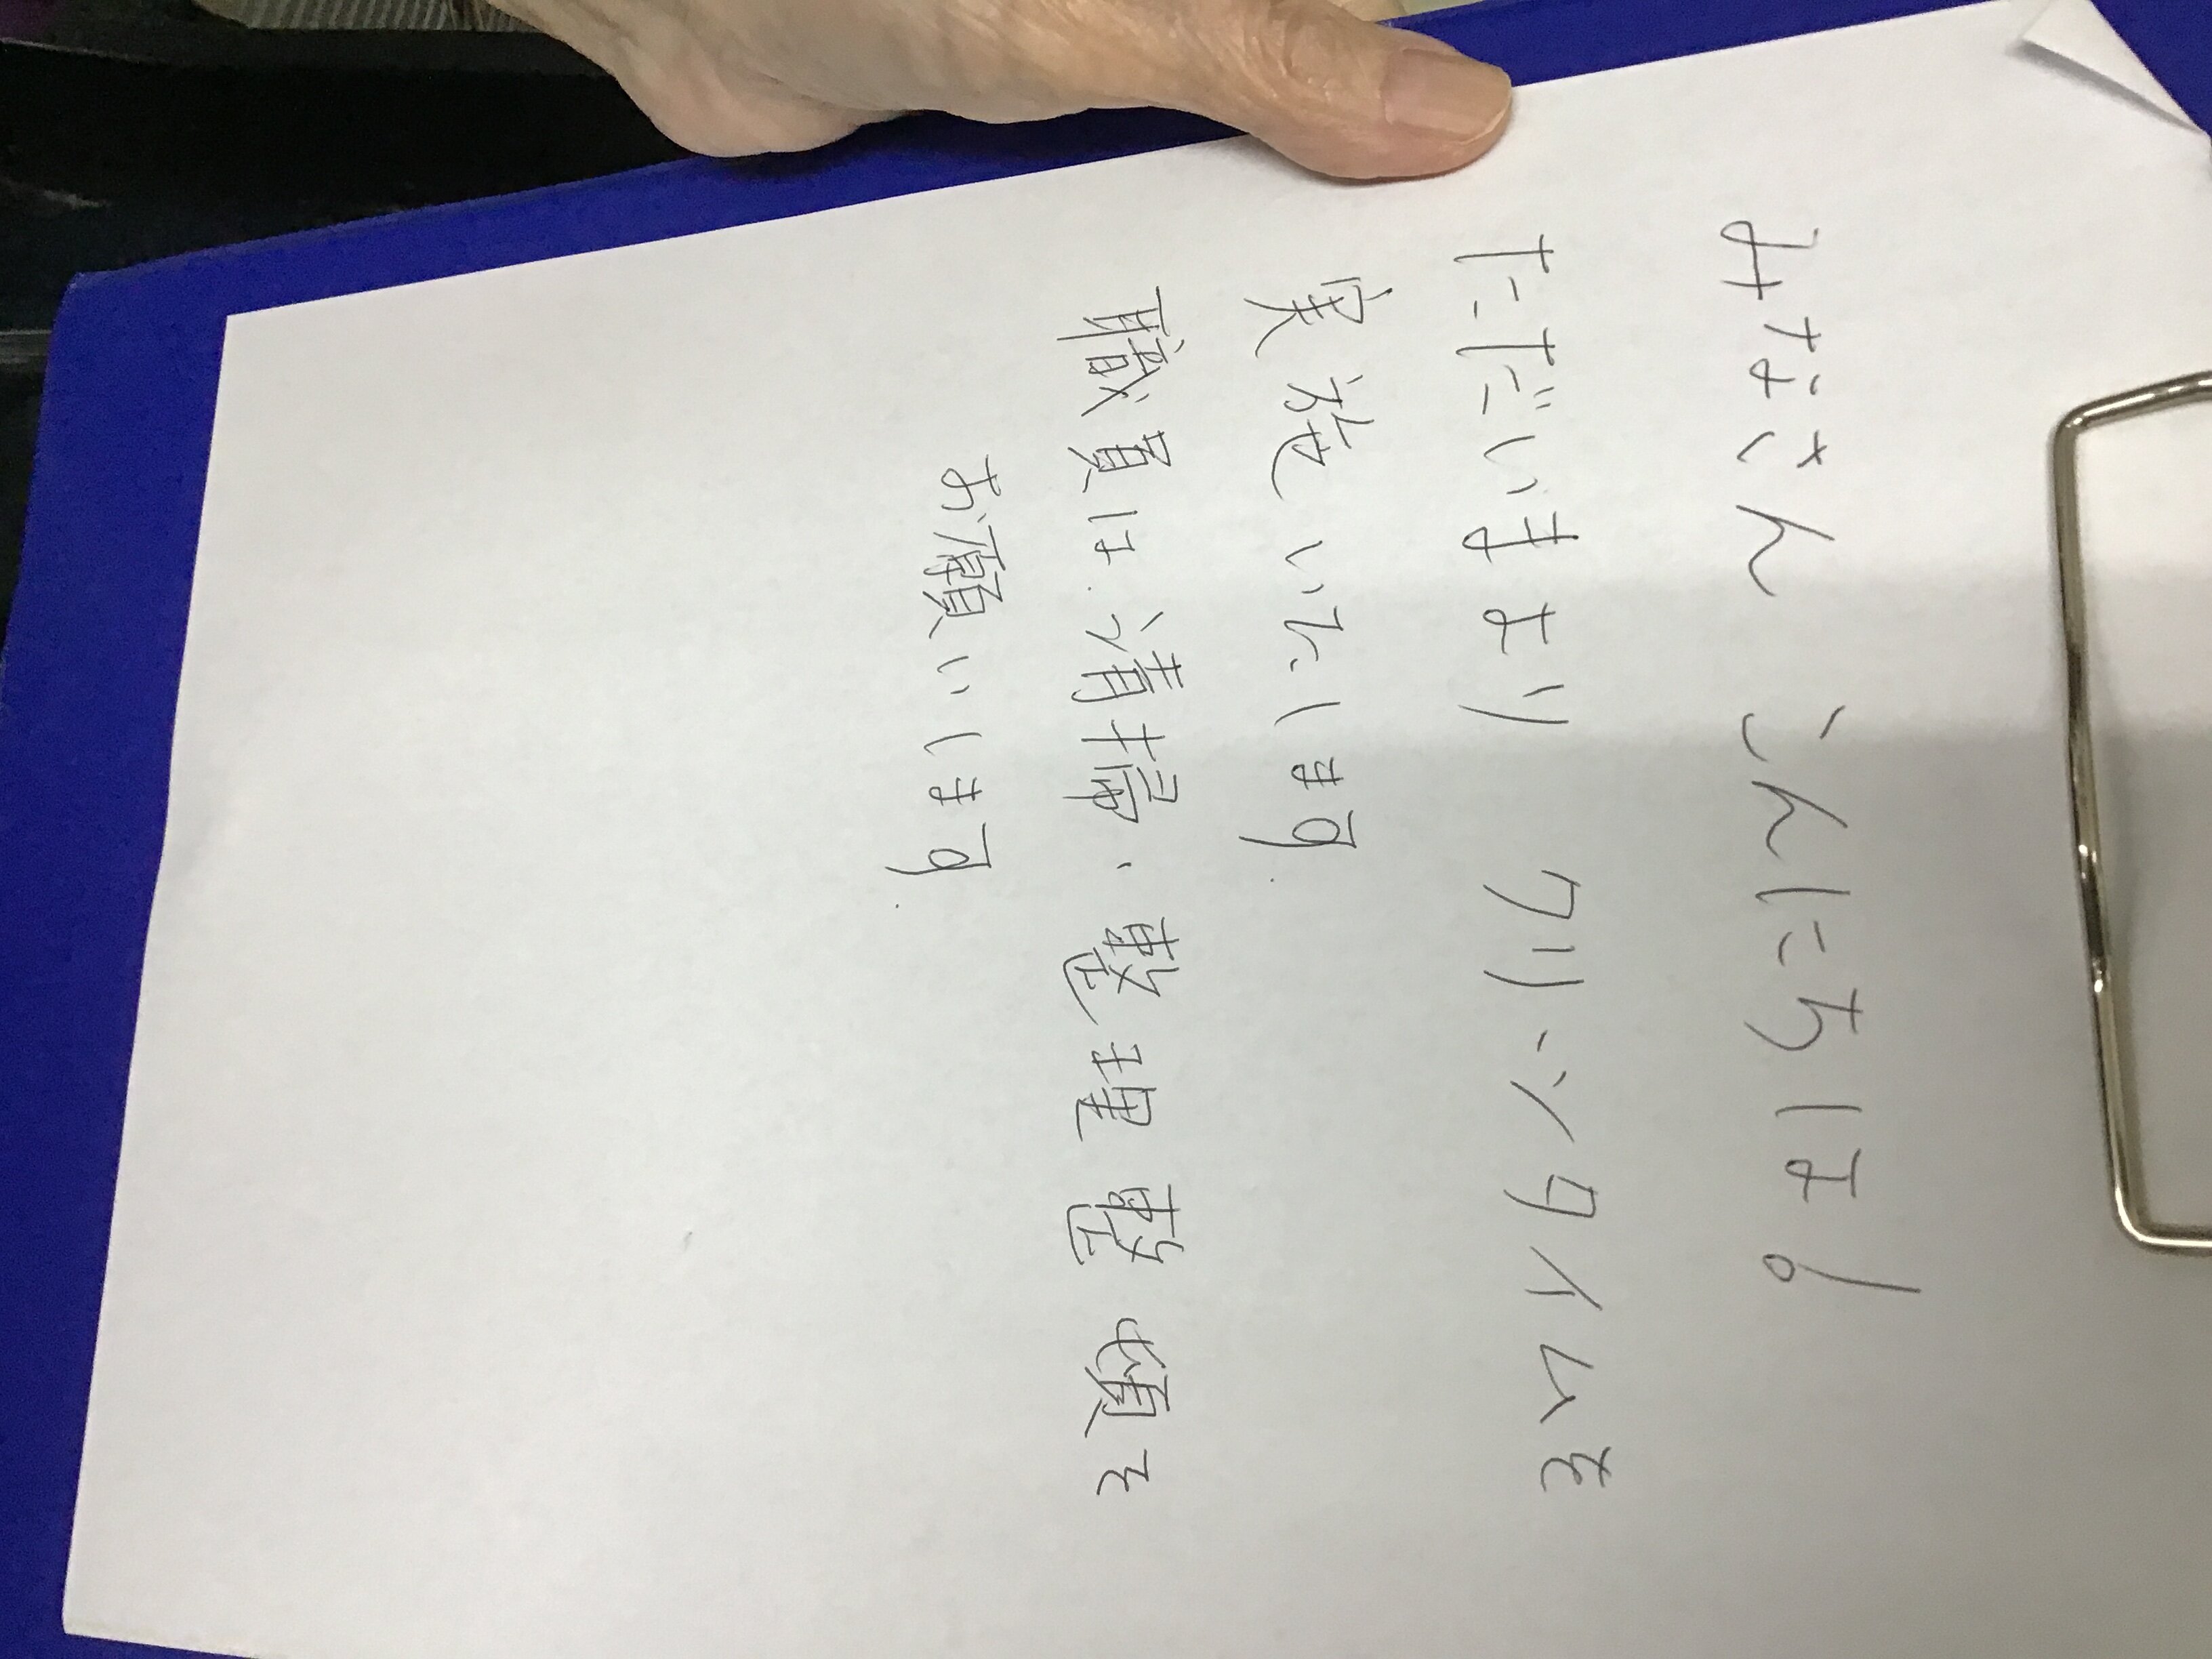 みなさん こんにちは!
ただいまより クリンタイムを
実施いたします.
職員は.清掃、整理整頓を
お願いします.